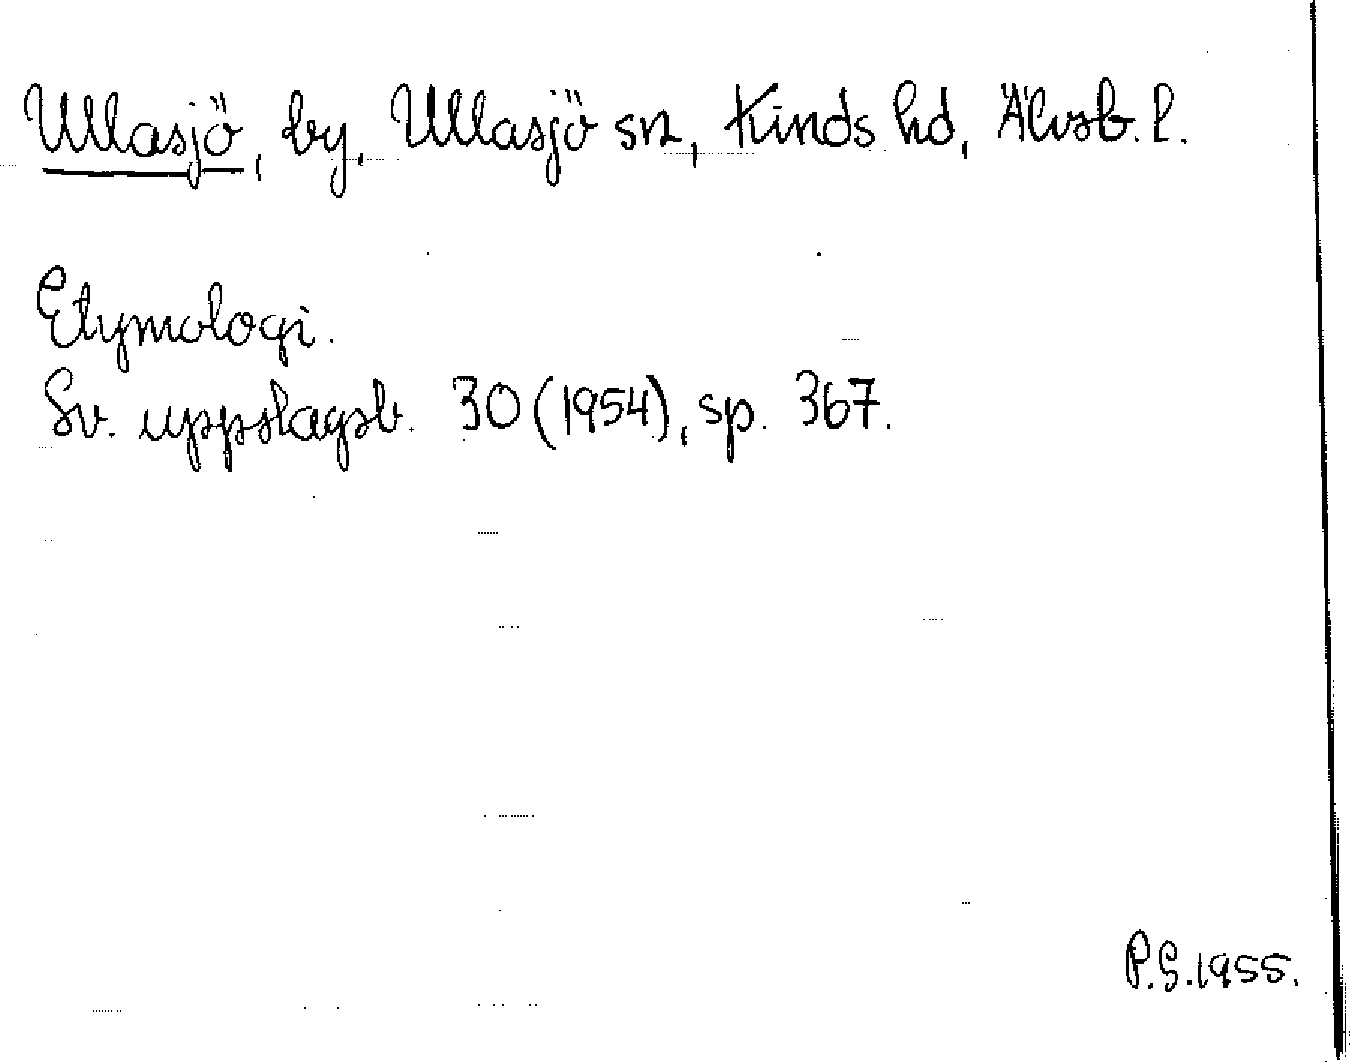 Ullasjö, by, Ullasjö sn, Kinds hd, Älvsb. l.
Etymologi.
Sv. uppslagsb. 30 (1954), sp. 367.
P.S. 1955.